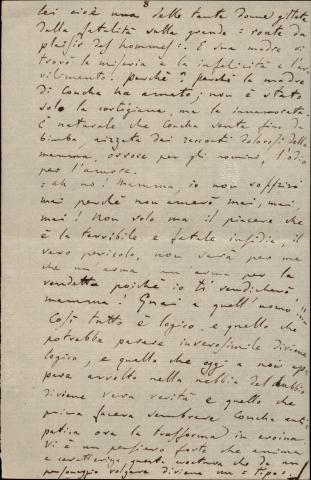 8
lei cioè una delle tante donne gittate
dalla fatalità sulla grande = route du
plaisir des hommes = . E sua madre vi
trovò la miseria e la infelicità e l'av
vilimento. perchè? perchè la madre
di Concha ha amato; non è stata
solo la cortigiana, ma la innamorata.
È naturale che Concha senta fino da
bimba, aizzata dai racconti dolorosi della
mamma, orrore per gli uomini, l'odio
per l'amore.
= ah no! Mamma, io non soffrirò
mai perchè non amerò mai, mai,
mai! Non solo ma il piacere che
è la terribile e fatale insidia, il
vero pericolo, non sarà per me
che un arma un'arma per la
vendetta poichè io ti vendicherò
mamma! Guai a quell'uomo!!
Così tutto è logico, e quello che
potrebbe parere inverosimile diviene
logico, e quello che oggi a noi ap
pare avvolto nella nebbia del dubbio
diviene vera verità e quello che
prima faceva sembrare Concha anti
patica ora la trasforma in eroina.
Vi è un pensiero forte che anima
e caratterizza questa creatura che da un
personaggio volgare diviene un = tipo = .